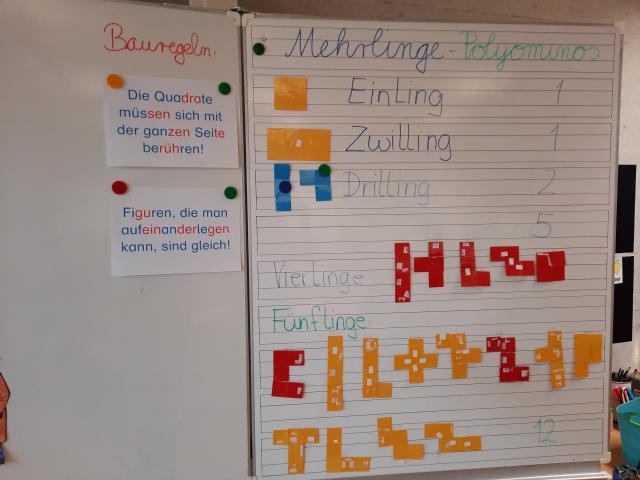 Bauregeln:
Die Quadrate
müssen sich mit
der ganzen Seite
berühren!
Figuren, die man
aufeinanderlegen
kann, sind gleich!
Mehrlinge - Polyominos
Einling 1
Zwilling 1
Drilling 2
5
Vierlinge
Fünflinge:
12